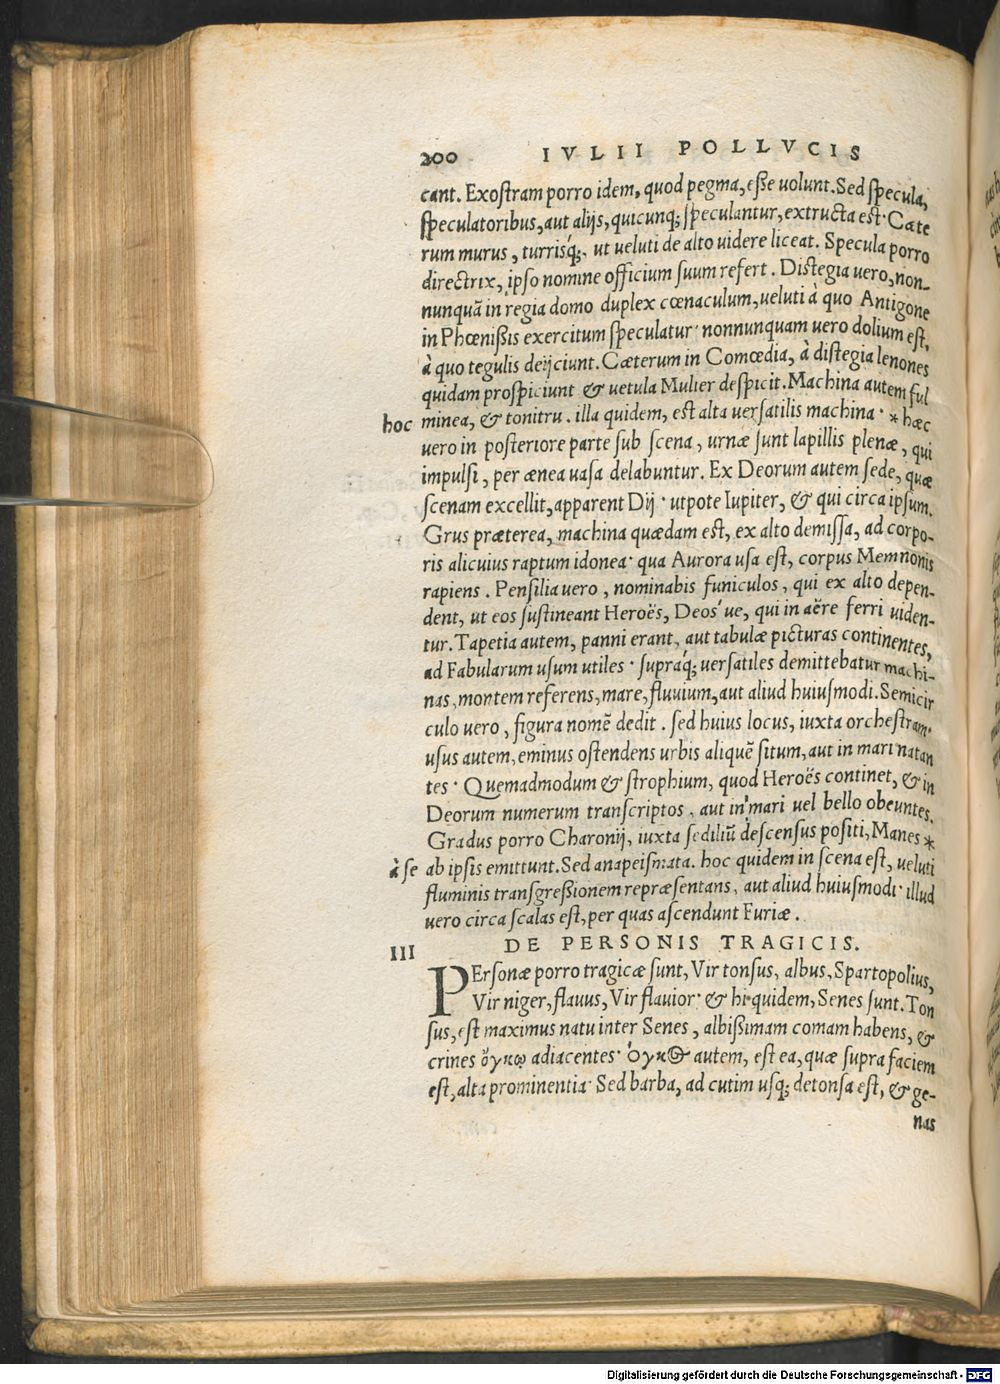 200 IVLII POLLVCIS
cant. Exoſtram porro idem, quod pegma, eſſe uolunt. Sed ſpecula,
ſpeculatoribus, aut alijs, quicunq; ſpeculantur, extructa eſt. Cæte
rum murus, turrisq́;. ut ueluti de alto uidere liceat. Specula porro
directrix, ipſo nomine officium ſuum refert. Diſtegia uero, non-
nunquā in regia domo duplex cœnaculum, ueluti à quo Antigone
in Phœniſſis exercitum ſpeculatur. nonnunquam uero dolium eſt,
à quo tegulis deijciunt. Cæterum in Comœdia, à diſtegia lenones
quidam proſpiciunt & uetula Mulier deſpicit. Machina autem ful
hoc minea, & tonitru. illa quidem, eſt alta uerſatilis machina. * hæc
uero in poſteriore parte ſub ſcena, urnæ ſunt lapillis plenæ, qui
impulſi, per ænea uaſa delabuntur. Ex Deorum autem ſede, quæ
ſcenam excellit, apparent Dij. utpote Iupiter, & qui circa ipſum.
Grus præterea, machina quædam eſt, ex alto demiſſa, ad corpo-
ris alicuius raptum idonea. qua Aurora uſa eſt, corpus Memnonis
rapiens. Penſilia uero, nominabis funiculos, qui ex alto depen-
dent, ut eos ſuſtineant Heroës, Deos'ue, qui in aëre ferri uiden-
tur. Tapetia autem, panni erant, aut tabulæ picturas continentes,
ad Fabularum uſum utiles. ſupraq́; uerſatiles demittebatur machi-
nas, montem referens, mare, fluuium, aut aliud huiuſmodi. Semicir
culo uero, figura nomē dedit. ſed huius locus, iuxta orcheſtram.
uſus autem, eminus oſtendens urbis aliquē ſitum, aut in mari natan
tes. Quemadmodum & ſtrophium, quod Heroës continet, & in
Deorum numerum tranſcriptos. aut in mari uel bello obeuntes.
Gradus porro Charonij, iuxta ſediliū deſcenſus poſiti, Manes *
à ſe ab ipſis emittunt. Sed anapeiſmata. hoc quidem in ſcena eſt, ueluti
fluminis tranſgreſſionem repræſentans, aut aliud huiuſmodi. illud
uero circa ſcalas eſt, per quas aſcendunt Furiæ.
III DE PERSONIS TRAGICIS.
PErſonæ porro tragicæ ſunt, Vir tonſus, albus, Spartopolius,
Vir niger, flauus, Vir flauior. & hi quidem, Senes ſunt. Ton
ſus, eſt maximus natu inter Senes, albiſſimam comam habens, &
crines ὄγκῳ adiacentes. ὄγκος autem, eſt ea, quæ ſupra faciem
eſt, alta prominentia. Sed barba, ad cutim uſq; detonſa eſt, & ge-
nas
Digitalisierung gefördert durch die Deutsche Forschungsgemeinschaft - DFG